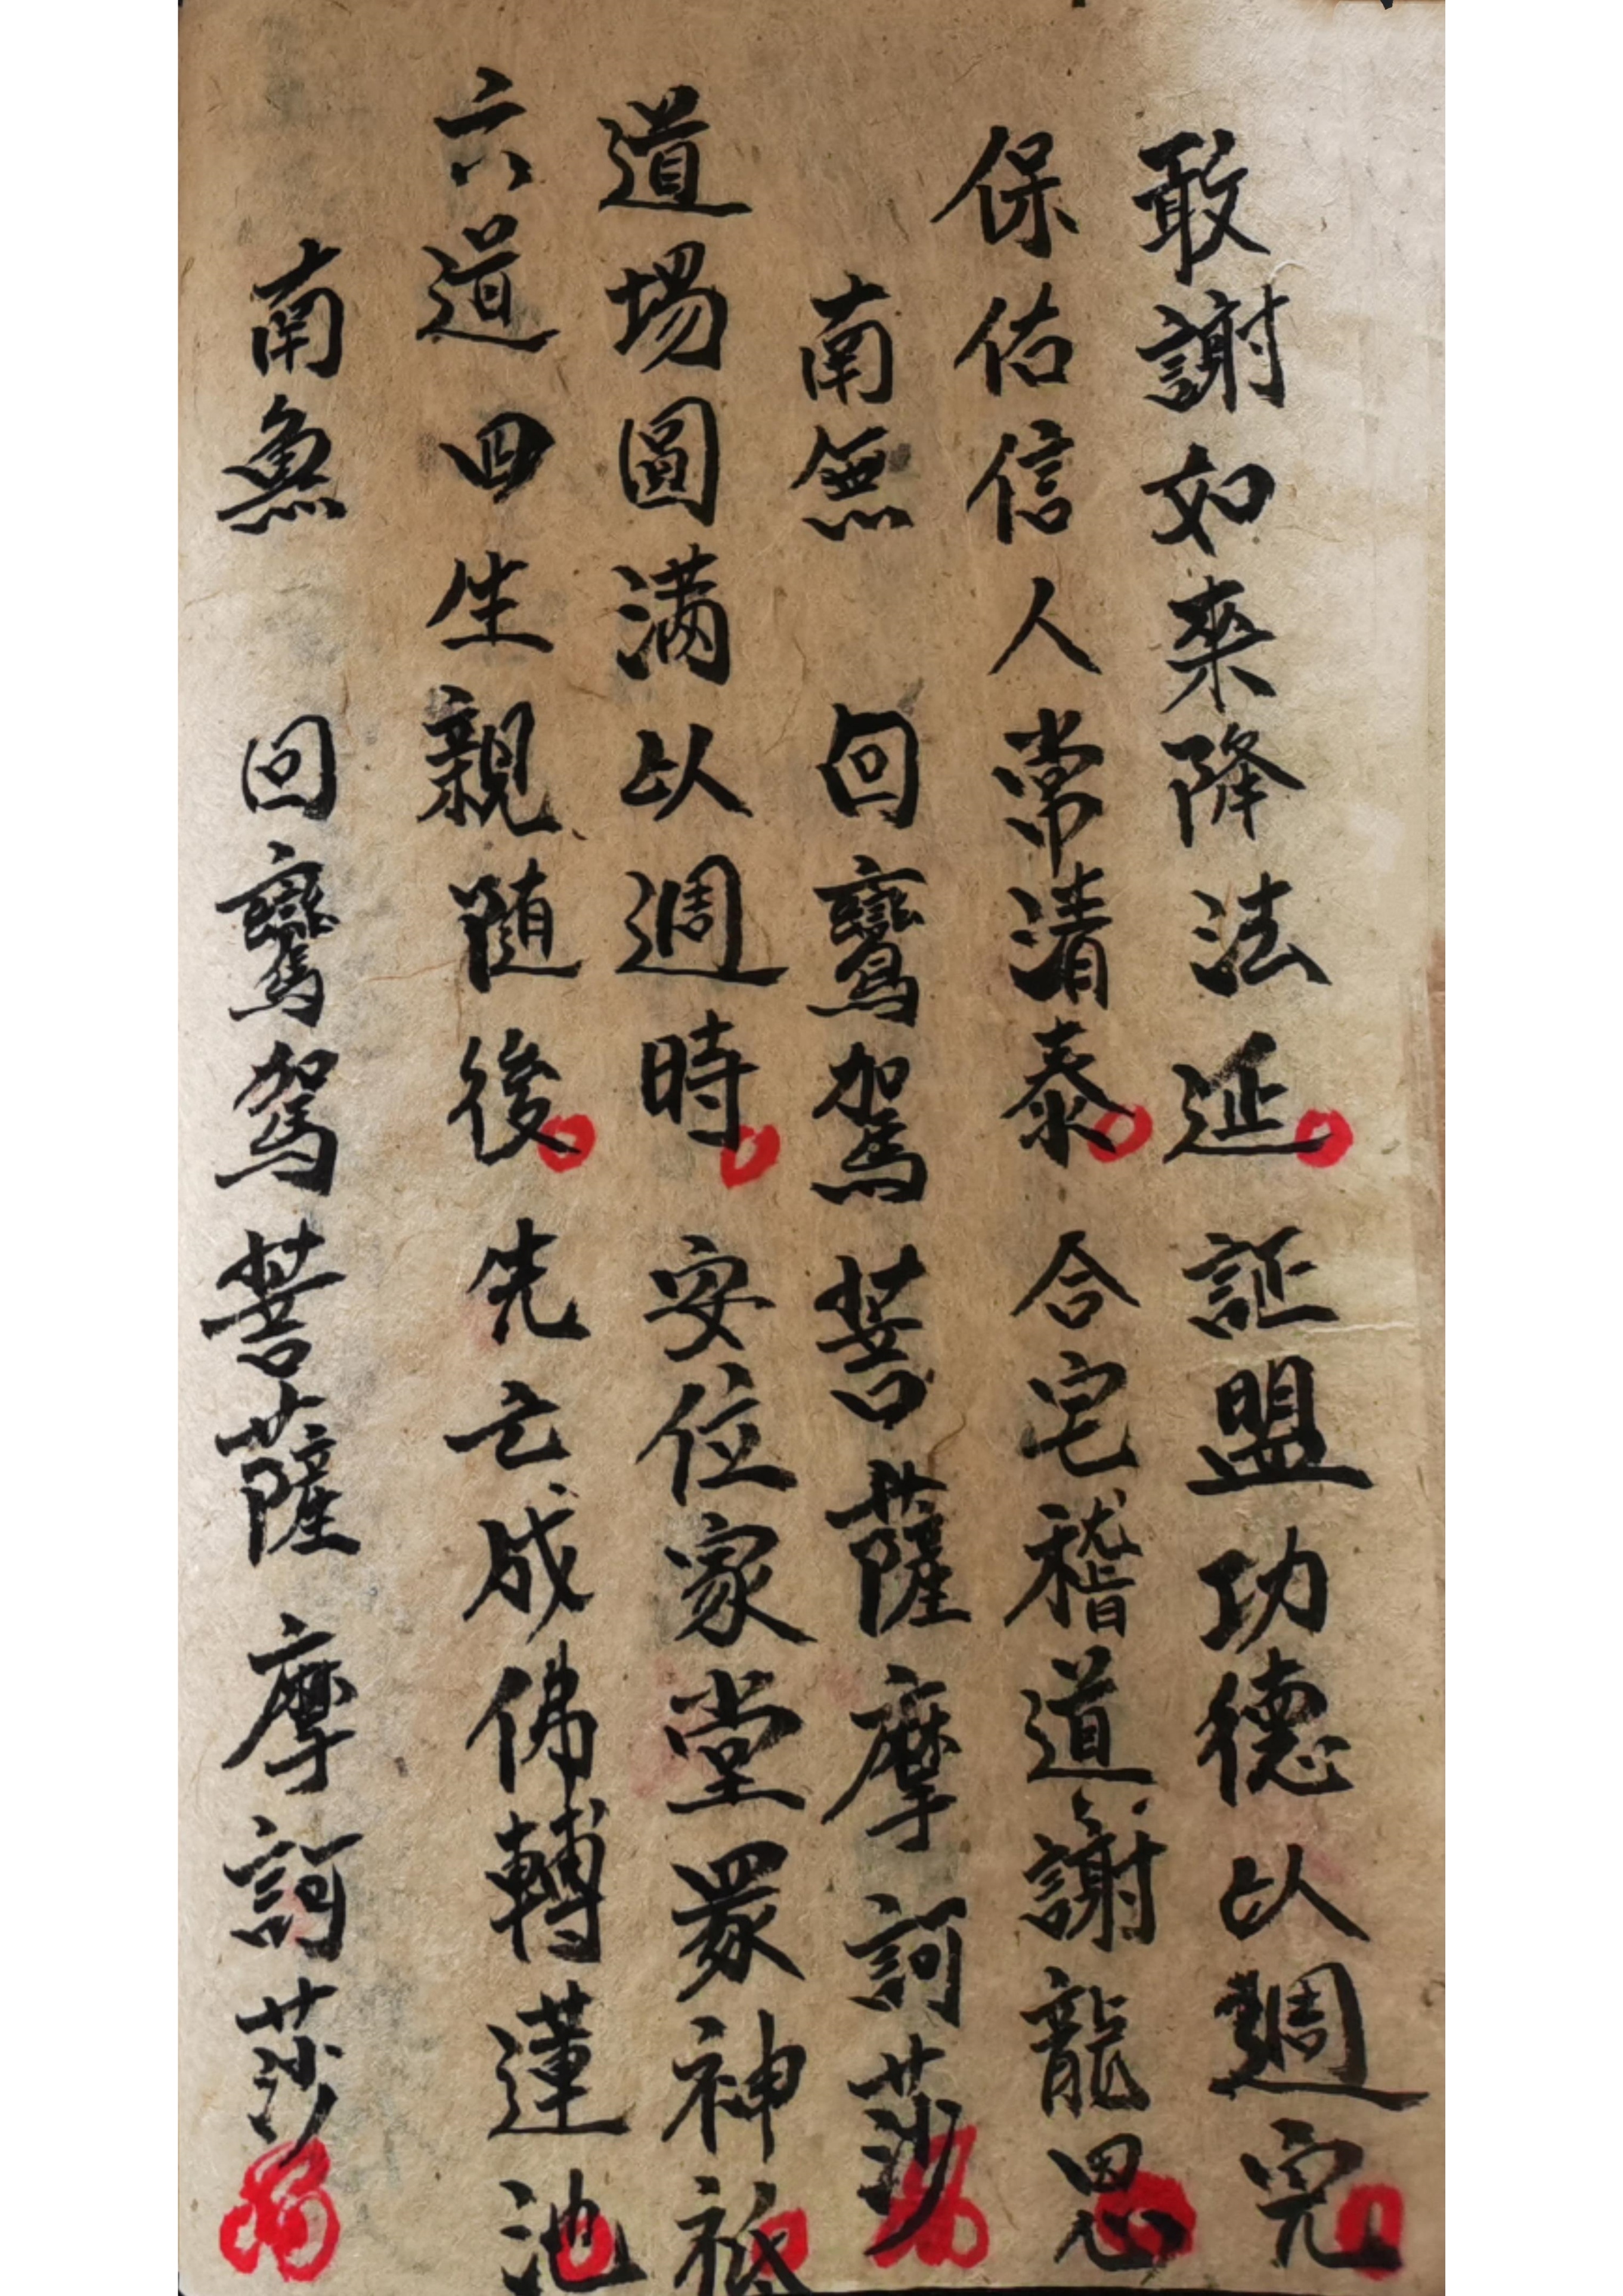 敢謝如來降法延証盟功德以週完
保佑信人常清泰合宅稽道謝龍恩
南無回鸞駕菩薩摩訶莎
道場圓满以週時安位家堂眾神祗
六道四生親随後先亡成佛轉蓮池
南無回鸞駕菩薩摩訶莎